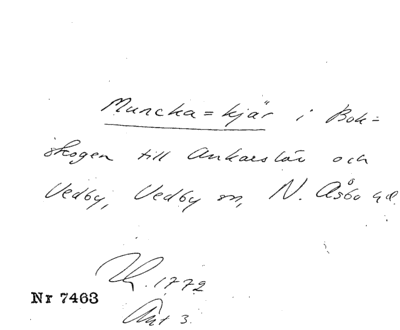 Muncka=kjär i Bok=
skogen till Ankarslöv och
Vedby, Vedby sn, N. Åsbo hd.
Lh. 1772
Akt 3.
Nr 7463